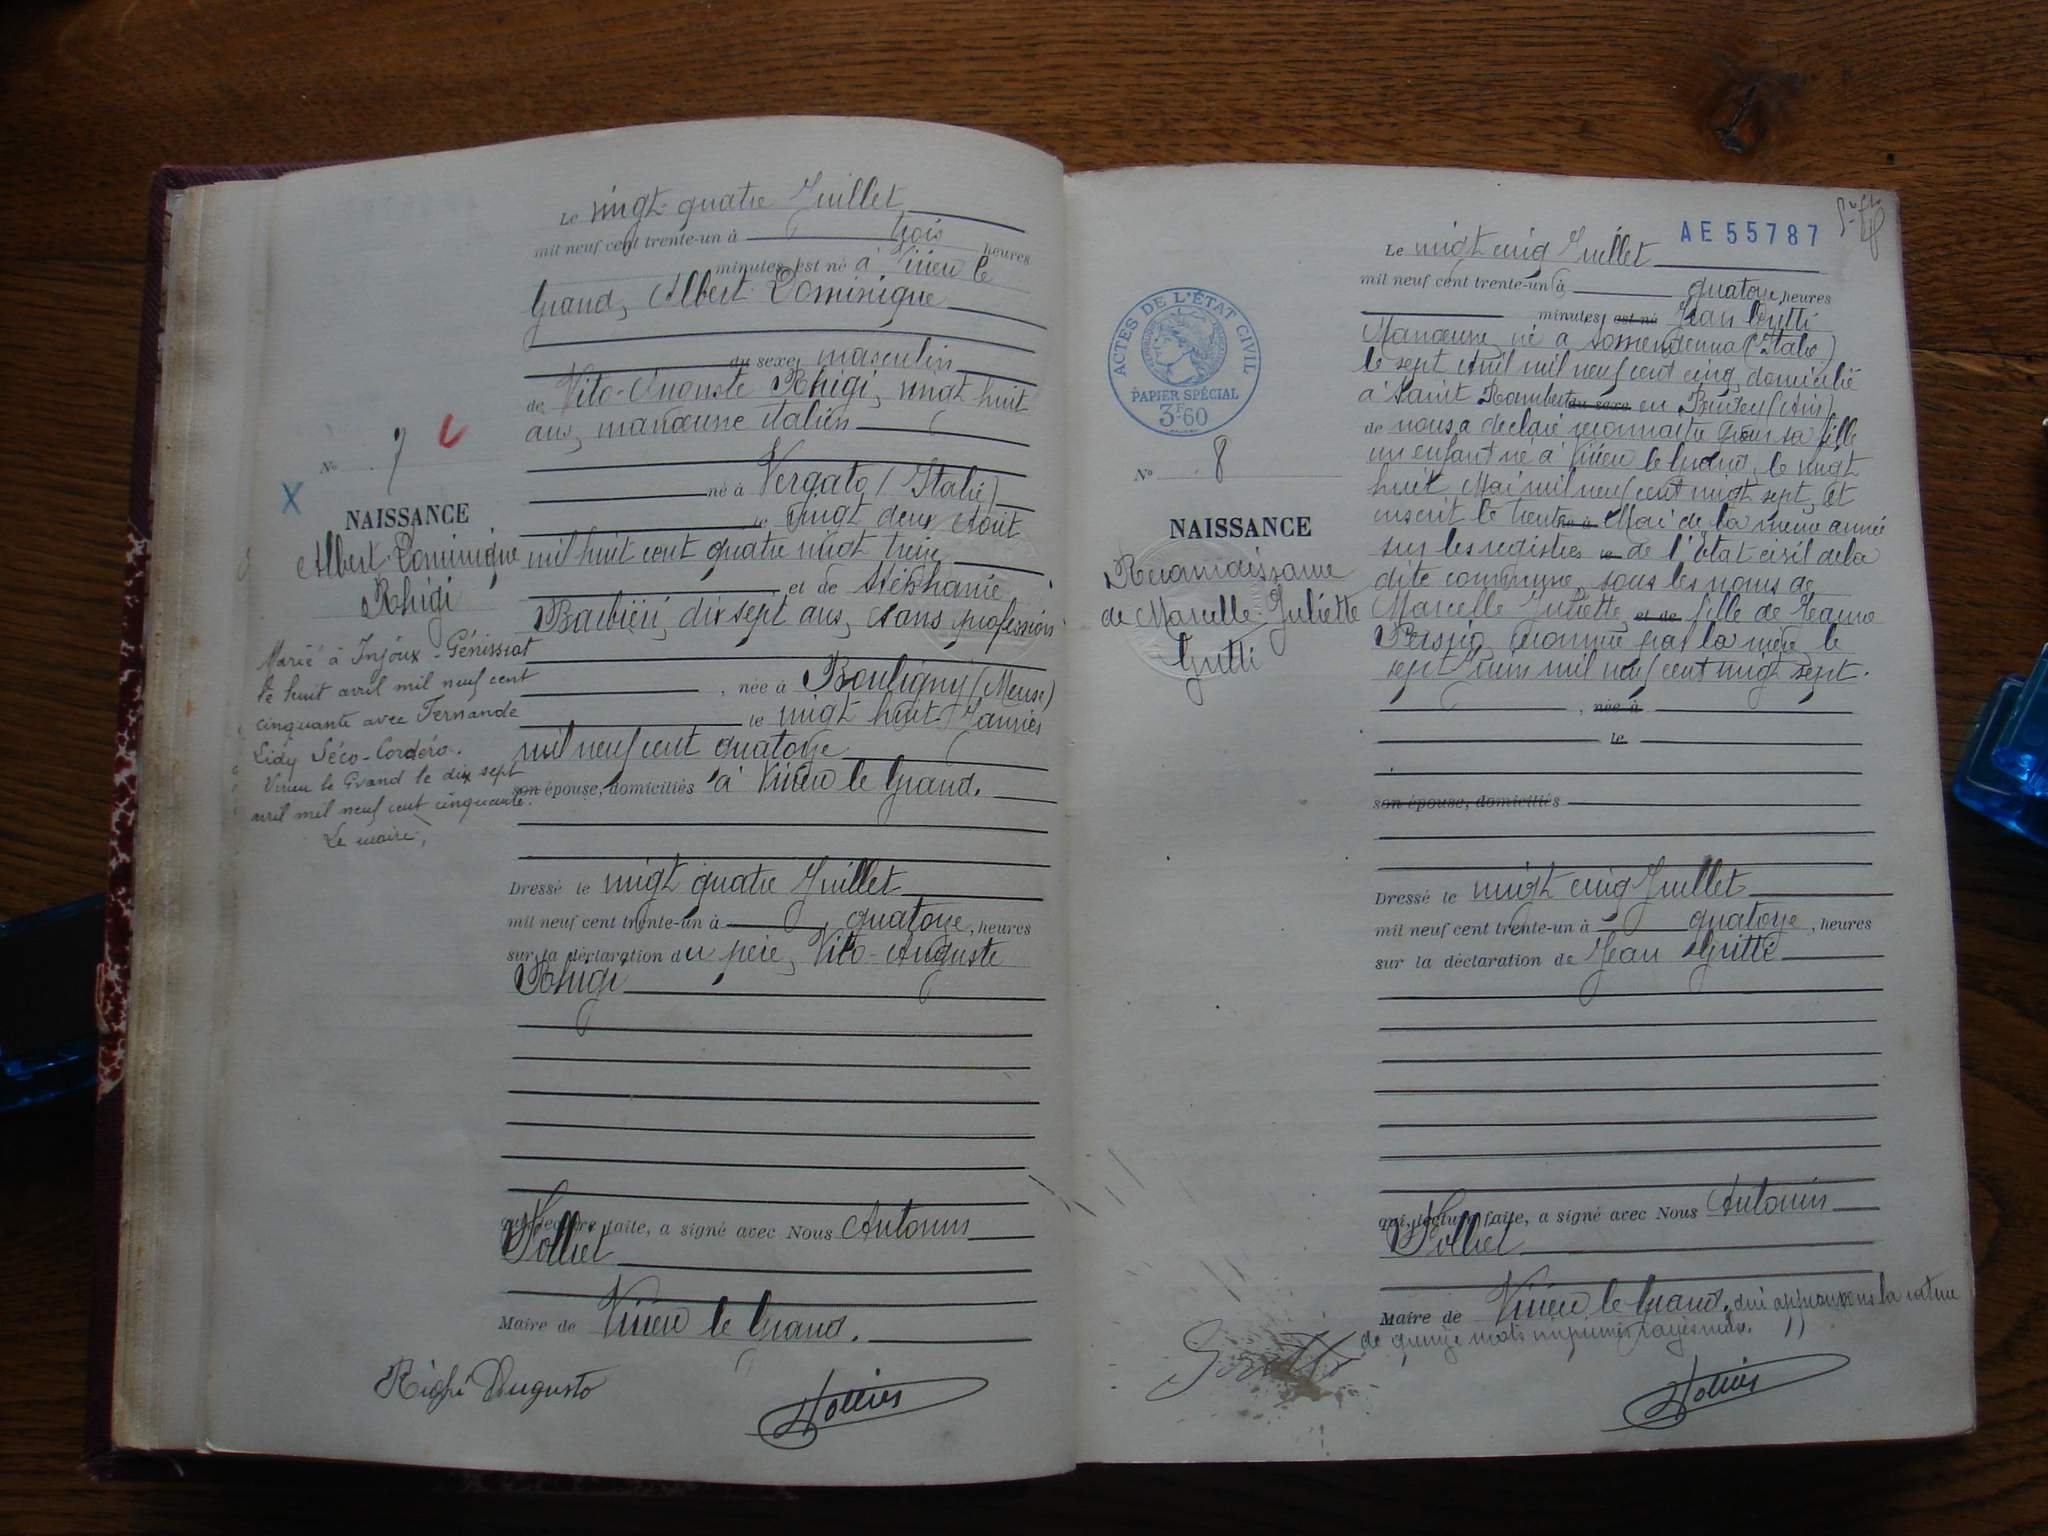 Le vingt-quatre Juillet
mil neuf cent trente-un à trois heures
minutes, est né à Virieu le
Grand, Albert Dominique
du sexe masculin
de Vito-Auguste Rhigi, vingt huit
ans, manœuvre italien
né à Vergato (Italie)
le vingt deux Août
mil huit cent quatre vingt treize
et de Stéphanie
Barbiéri, dix sept ans, sans profession
, née à Bouligny (Meuse)
le vingt huit Janvier
mil neuf cent quatorze
son épouse, domiciliés à Virieu le Grand.
Dressé le vingt quatre Juillet
mil neuf cent trente-un à quatorze, heures
sur la déclaration du père, Vito-Auguste
Rhigi
qui, lecture faite, a signé avec Nous Antonin
Tolliet
Maire de Virieu le Grand.
Righi Augusto
N° 7
X
NAISSANCE
Albert-Dominique
Rhigi
Marié à Injoux-Génissiat
le huit avril mil neuf cent
cinquante avec Fernande
Lidy Séco-Cordéro.
Virieu le Grand le dix sept
avril mil neuf cent cinquante.
Le maire,
AE55787
ACTES DE L'ÉTAT CIVIL
PAPIER SPÉCIAL
3F60
N° 8
NAISSANCE
Reconnaissance
de Marcelle-Juliette
Gritti
Le vingt cinq Juillet
mil neuf cent trente-un à quatorze heures
minutes, est né Jean Gritti
Manœuvre, né à Somendenna (Italie)
le sept Avril mil neuf cent cinq, domicilié
à Saint Rambert du sexe en Bugey (Ain)
de nous a déclaré reconnaître pour sa fille
un enfant né à Virieu le Grand, le vingt
huit Mai mil neuf cent vingt sept, et
inscrit le trente né à Mai de la même année
sur les registres le de l'Etat civil de la
dite commune, sous les noms de
Marcelle Juliette, et de fille de Jeanne
Persico, reconnue par la mère le
sept Juin mil neuf cent vingt sept.
, née à
le
son épouse, domiciliés
Dressé le vingt cinq Juillet
mil neuf cent trente-un à quatorze, heures
sur la déclaration de Jean Gritti
qui, lecture faite, a signé avec Nous Antonin
Tolliet
Maire de Virieu le Grand, qui approuvons la rature
de quinze mots imprimés rayés nuls.
Gritti